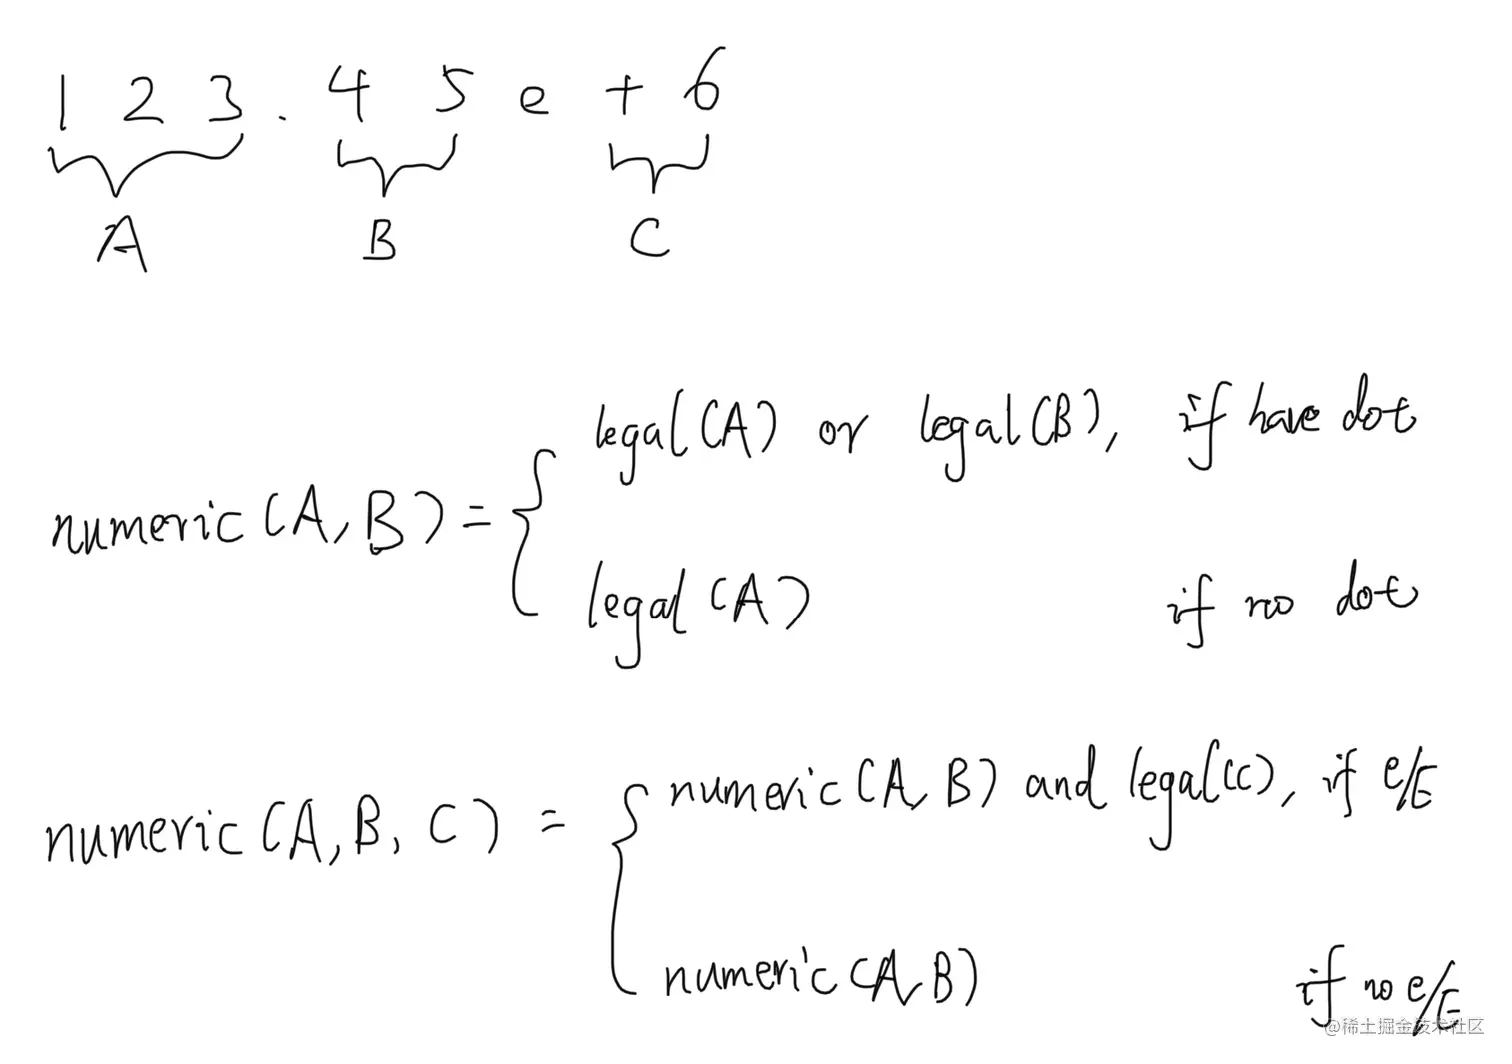 1 2 3 . 4 5 e + 6
A B C
legal(A) or legal(B), if have dot
numeric(A, B) =
legal(A) if no dot
numeric(A, B) and legal(C), if e/E
numeric(A, B, C) =
numeric(A, B) if no e/E
@稀土掘金技术社区